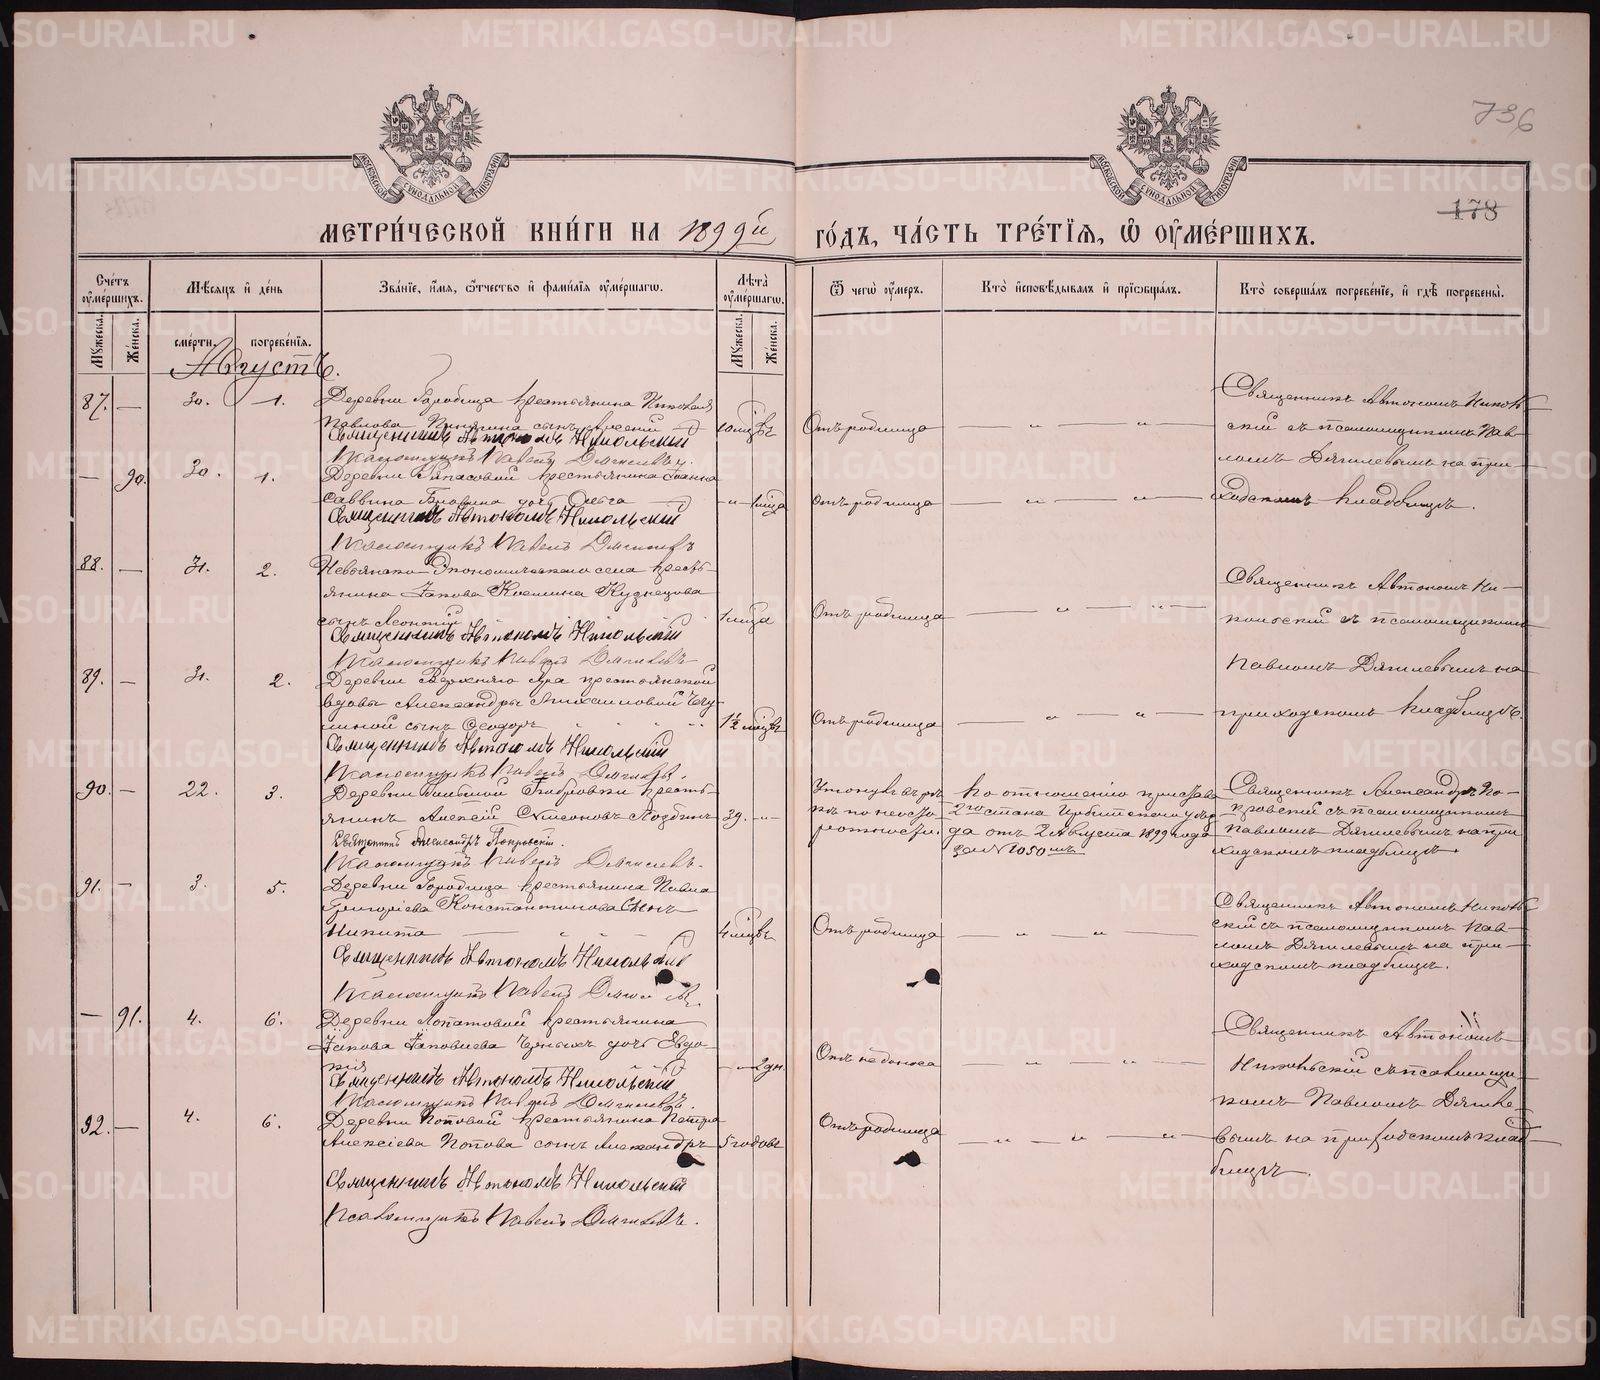 736
178
МЕТРИ́ЧЕСКОЙ КНИ́ГИ НА 1899й ГО́ДЪ, ЧА́СТЬ ТРЕ́ТІѦ, Ѡ҆ ОУ҆МЕ́РШИХЪ.
Сче́тъ оу҆ме́ршихъ.
Мꙋ́жеска.
Же́нска.
Мѣ́сѧцъ и҆ де́нь
сме́рти.
погребе́нїѧ.
Зва́нїе, и҆́мѧ, ѻ҆́тчество и҆ фами́лїѧ оу҆ме́ршагѡ.
Лѣ́та оу҆ме́ршагѡ.
Мꙋ́жеска.
Же́нска.
Ѿ чегѡ̀ оу҆́меръ.
Кто̀ и҆сповѣ́дывалъ и҆ прїѡбща́лъ.
Кто̀ соверша́лъ погребе́нїе, и҆ гдѣ̀ погребены̀.
Августъ.
87. — 30. 1.
Деревни Городища крестьянина Николая
Павлова сынъ
Священникъ Автономъ Никольскій
Псаломщикъ Павелъ
10 мцвъ
Отъ родимца
Священникъ Автономъ Николь-
скій съ псаломщикомъ Пав-
ломъ Дягилевымъ на при-
ходскомъ кладбищѣ.
— 90. 30. 1.
Деревни крестьянина Іоанна
Саввина дочь Ольга
Священникъ Автономъ Никольскій
Псаломщикъ Павелъ
1 мца
Отъ родимца
88. — 31. 2.
Невьянско-Экономическаго села кресть-
янина Іакова Космина Кузнецова
сынъ Леонтій
Священникъ Автономъ Никольскій
Псаломщикъ Павелъ
1 мца
Отъ родимца
Священникъ Автономъ Ни-
кольскій съ псаломщикомъ
Павломъ Дягилевымъ на
приходскомъ кладбищѣ.
89. — 31. 2.
Деревни Верхняго Яра крестьянской
вдовы Александры Михаиловой
сынъ Ѳеодоръ
Священникъ Автономъ Никольскій
Псаломщикъ Павелъ
1½ мцвъ
Отъ родимца
90. — 22. 3.
Деревни Бобровки кресть-
янинъ Алексій Симеоновъ
Священникъ Александръ Покровскій.
Псаломщикъ Павелъ
39.
Утонулъ въ рѣ-
кѣ по неосто-
рожности.
По отношенію пристава
2го стана Ирбитскаго уѣз-
да отъ 2 Августа 1899 года
за № 1050мъ
Священникъ Александръ По-
кровскій съ псаломщикомъ
Павломъ Дягилевымъ на при-
ходскомъ кладбищѣ.
91. — 3. 5.
Деревни Городища крестьянина Павла
Григоріева Константинова сынъ
Никита
Священникъ Автономъ Никольскій
Псаломщикъ Павелъ
4 мцвъ
Отъ родимца
Священникъ Автономъ Николь-
скій съ псаломщикомъ Пав-
ломъ Дягилевымъ на при-
ходскомъ кладбищѣ.
— 91. 4. 6.
Деревни Лопатовой крестьянина
Іакова Іаковлева Черныхъ дочь Евдо-
кія
Священникъ Автономъ Никольскій
Псаломщикъ Павелъ
2 дн.
Отъ недоноса
Священникъ Автономъ
Никольскій съ псаломщи-
комъ Павломъ Дягиле-
вымъ на приходскомъ клад-
бищѣ.
92. — 4. 6.
Деревни Поповой крестьянина Петра
Алексіева Попова сынъ Александръ
Священникъ Автономъ Никольскій
Псаломщикъ Павелъ
5 годовъ
Отъ родимца
METRIKI.GASO-URAL.RU